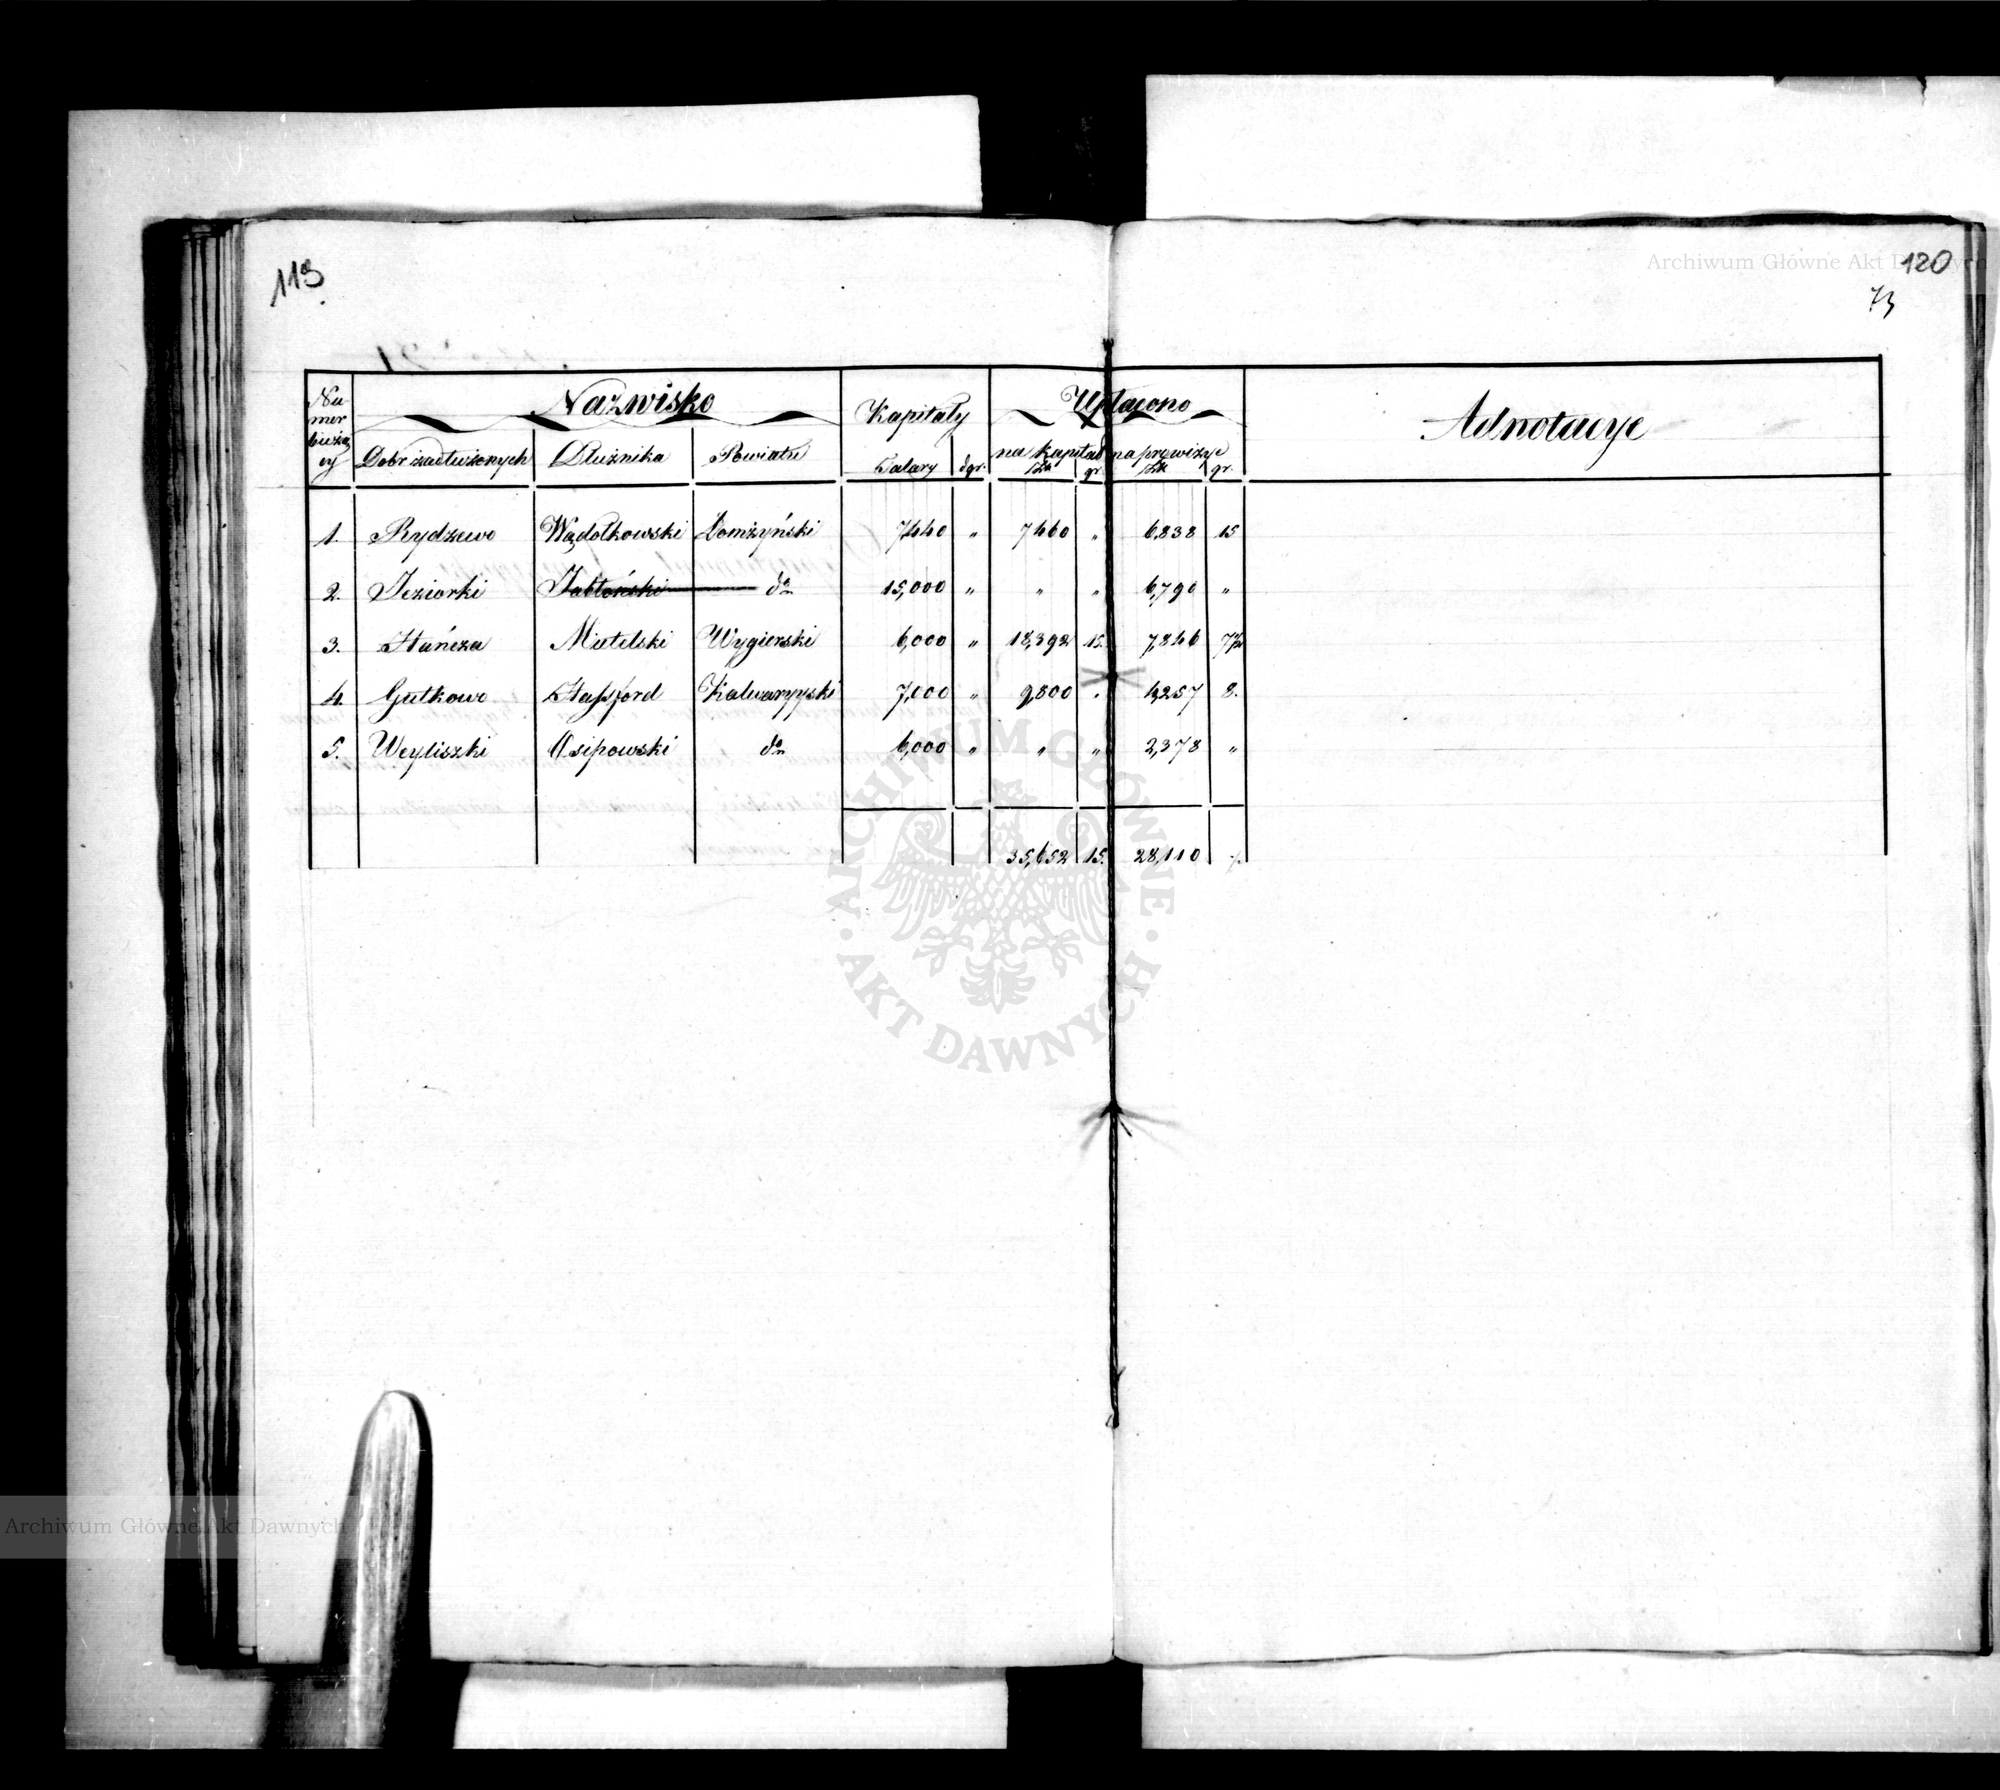 119
Archiwum Główne Akt Dawnych
120
73
Nu-
mer
bieżą-
cy
Nazwisko
Dobr zadłużonych
Dłużnika
Powiatu
Kapitały
Talary
dgr.
Wpłacono
na kapitał
gr.
na prowizye
gr.
Adnotacye
1. Rydzewo Wądołkowski Łomżyński 7,440 " 7460 " 6,838 15
2. Jeziorki Jabłoński do 15,000 " " " 6,790 "
3. Hańcza Mietelski Wygierski 6,000 " 18,392 15. 7,846 7½
4. Gutkowo Hassford Kalwaryjski 7,000 " 9,800 " 4,257 8.
5. Weyliszki Osipowski do 6,000 " " " 2,378 "
35,652 15. 28,110
ARCHIWUM GŁÓWNE
AKT DAWNYCH
Archiwum Główne Akt Dawnych